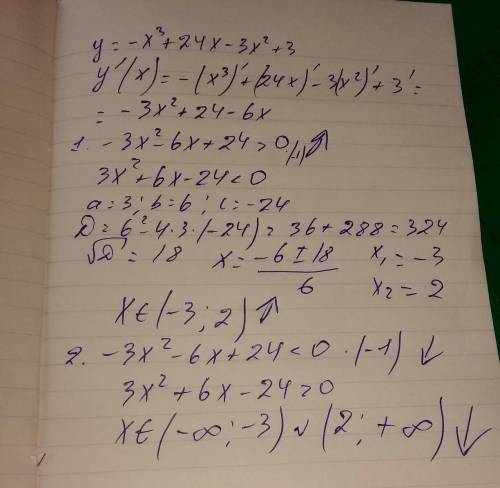 y = -x³ + 24x - 3x² + 3
y'(x) = -(x³)' + (24x)' - 3(x²)' + 3' =
= -3x² + 24 - 6x
1. -3x² - 6x + 24 > 0 /(-1) ↗
3x² + 6x - 24 < 0
a = 3; b = 6; c = -24
D = 6² - 4·3·(-24) = 36 + 288 = 324
√D = 18 x = (-6 ± 18)/6 x₁ = -3
x₂ = 2
x ∈ (-3; 2) ↗
2. -3x² - 6x + 24 < 0 ·(-1) ↓
3x² + 6x - 24 > 0
x ∈ (-∞; -3) ∪ (2; +∞) ↓